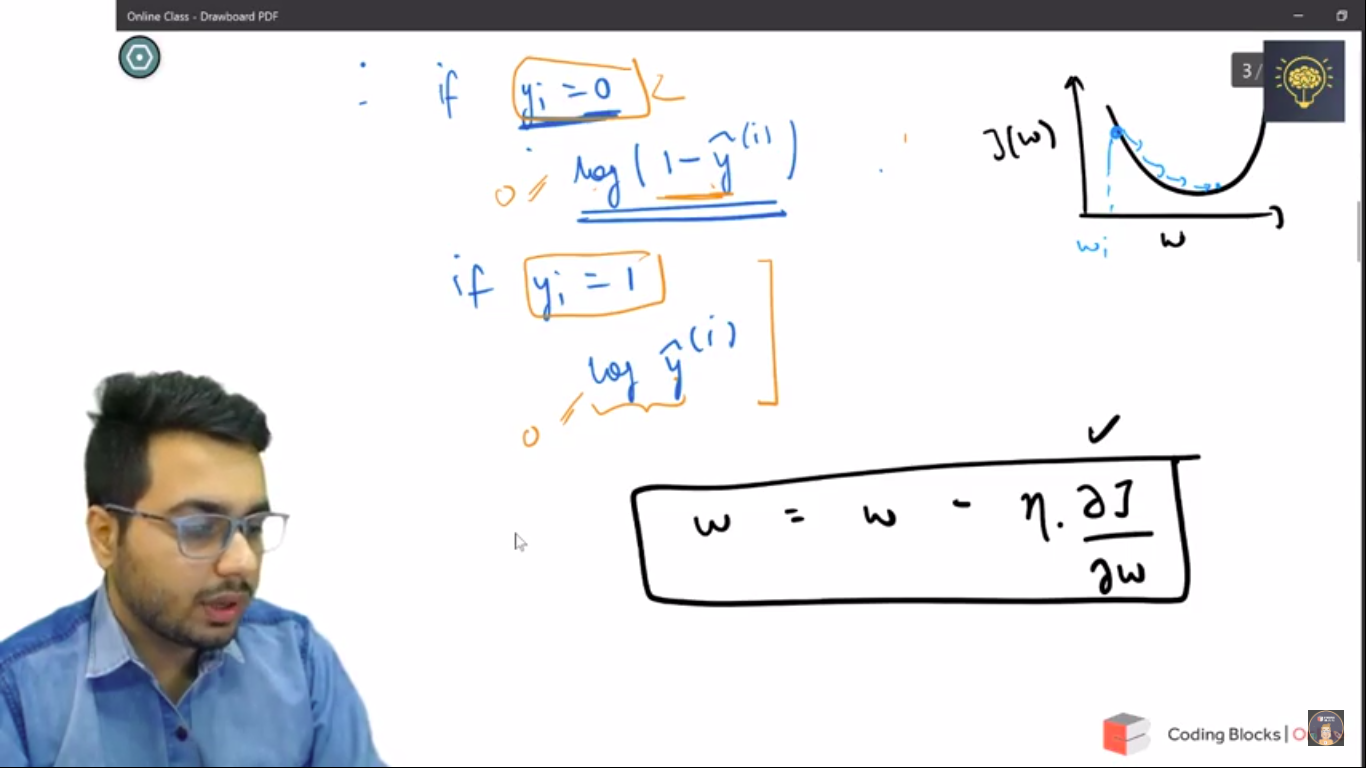 Online Class - Drawboard PDF
3/
: if yi = 0
0 log(1-ŷ^(i))
if yi = 1
0 log ŷ^(i)
J(w)
wi w
w = w - η. ∂J
∂w
Coding Blocks | O